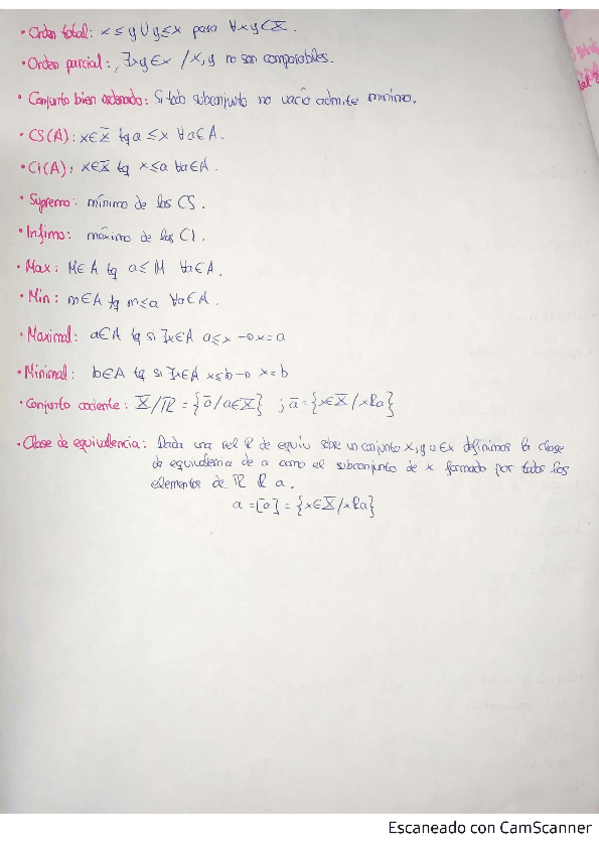 • Orden total: x ≤ y U y ≤ x para ∀x,y ∈ X.
• Orden parcial: ∃x,y ∈ x / x,y no son comparables.
• Conjunto bien ordenado: Si todo subconjunto no vacío admite mínimo.
• CS(A): x∈X tq a ≤ x ∀a∈A.
• CI(A): x∈X tq x≤a ∀a∈A.
• Supremo: mínimo de las CS.
• Infimo: máximo de las CI.
• Max: M∈A tq a≤M ∀a∈A.
• Min: m∈A tq m≤a ∀a∈A.
• Maximal: a∈A tq si ∃x∈A a≤x → x=a
• Minimal: b∈A tq si ∃x∈A x≤b → x=b
• Conjunto cociente: X/R = {ā/a∈X} ; ā={x∈X/xRa}
• Clase de equivalencia: Dada una rel R de equiv sobre un conjunto X, y a∈x definimos la clase
de equivalencia de a como el subconjunto de x formado por todos los
elementos de R R a.
a =[a] = {x∈X/xRa}
Escaneado con CamScanner